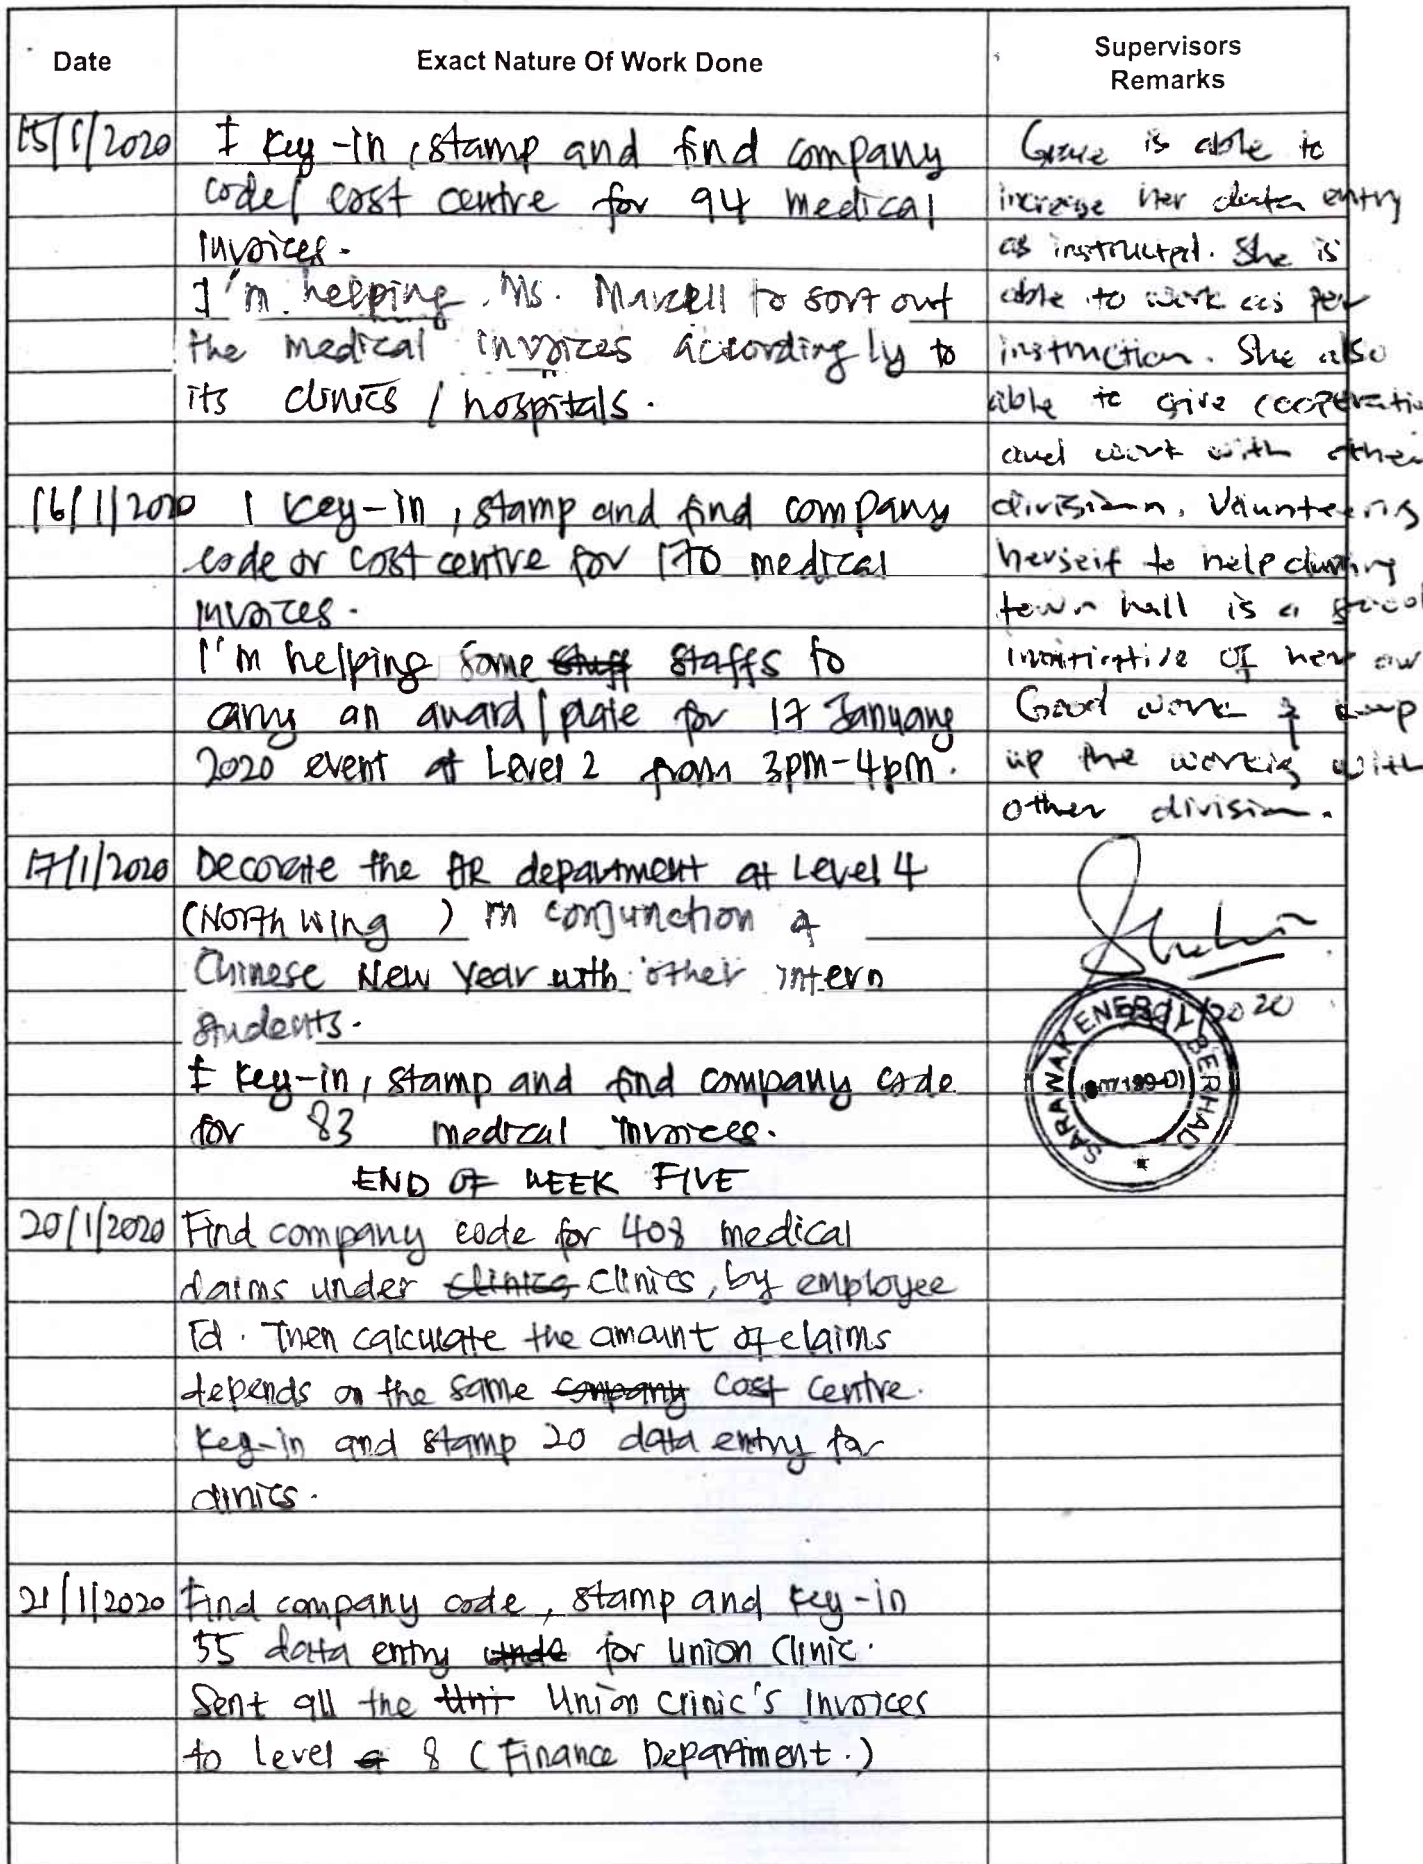 Date
Exact Nature Of Work Done
Supervisors
Remarks
15/1/2020
I key-in, stamp and find company
code/ cost centre for 94 medical
invoices.
I'm helping Ms. Marcell to sort out
the medical invoices accordingly to
its clinics / hospitals.
Grace is able to
increase her data entry
as instructed. She is
able to work as per
instruction. She also
able to give cooperatio
and work with other
division. Vaunteering
herself to help during
town hall is a good
of her ow
Good work & keep
up the working with
other division.
16/1/2020
I key-in, stamp and find company
code or cost centre for 170 medical
invoices.
I'm helping some stuff staffs to
carry an award/plate for 17 January
2020 event at Level 2 from 3pm-4pm.
17/1/2020
Decorate the HR department at Level 4
(North Wing ) in conjunction of
Chinese New Year with other intern
students.
I key-in, stamp and find company code
for 83 medical invoices.
END OF WEEK FIVE
/1/2020
SARAWAK ENERGY BERHAD
20/1/2020
Find company code for 408 medical
claims under clinics clinics, by employee
Id. Then calculate the amount of claims
depends on the same company cost centre.
Key-in and stamp 20 data entry for
clinics.
21/1/2020
Find company code, stamp and key-in
55 data entry unde for Union Clinic.
Sent all the Uni Union Clinic's invoices
to level 8 (Finance Department.)